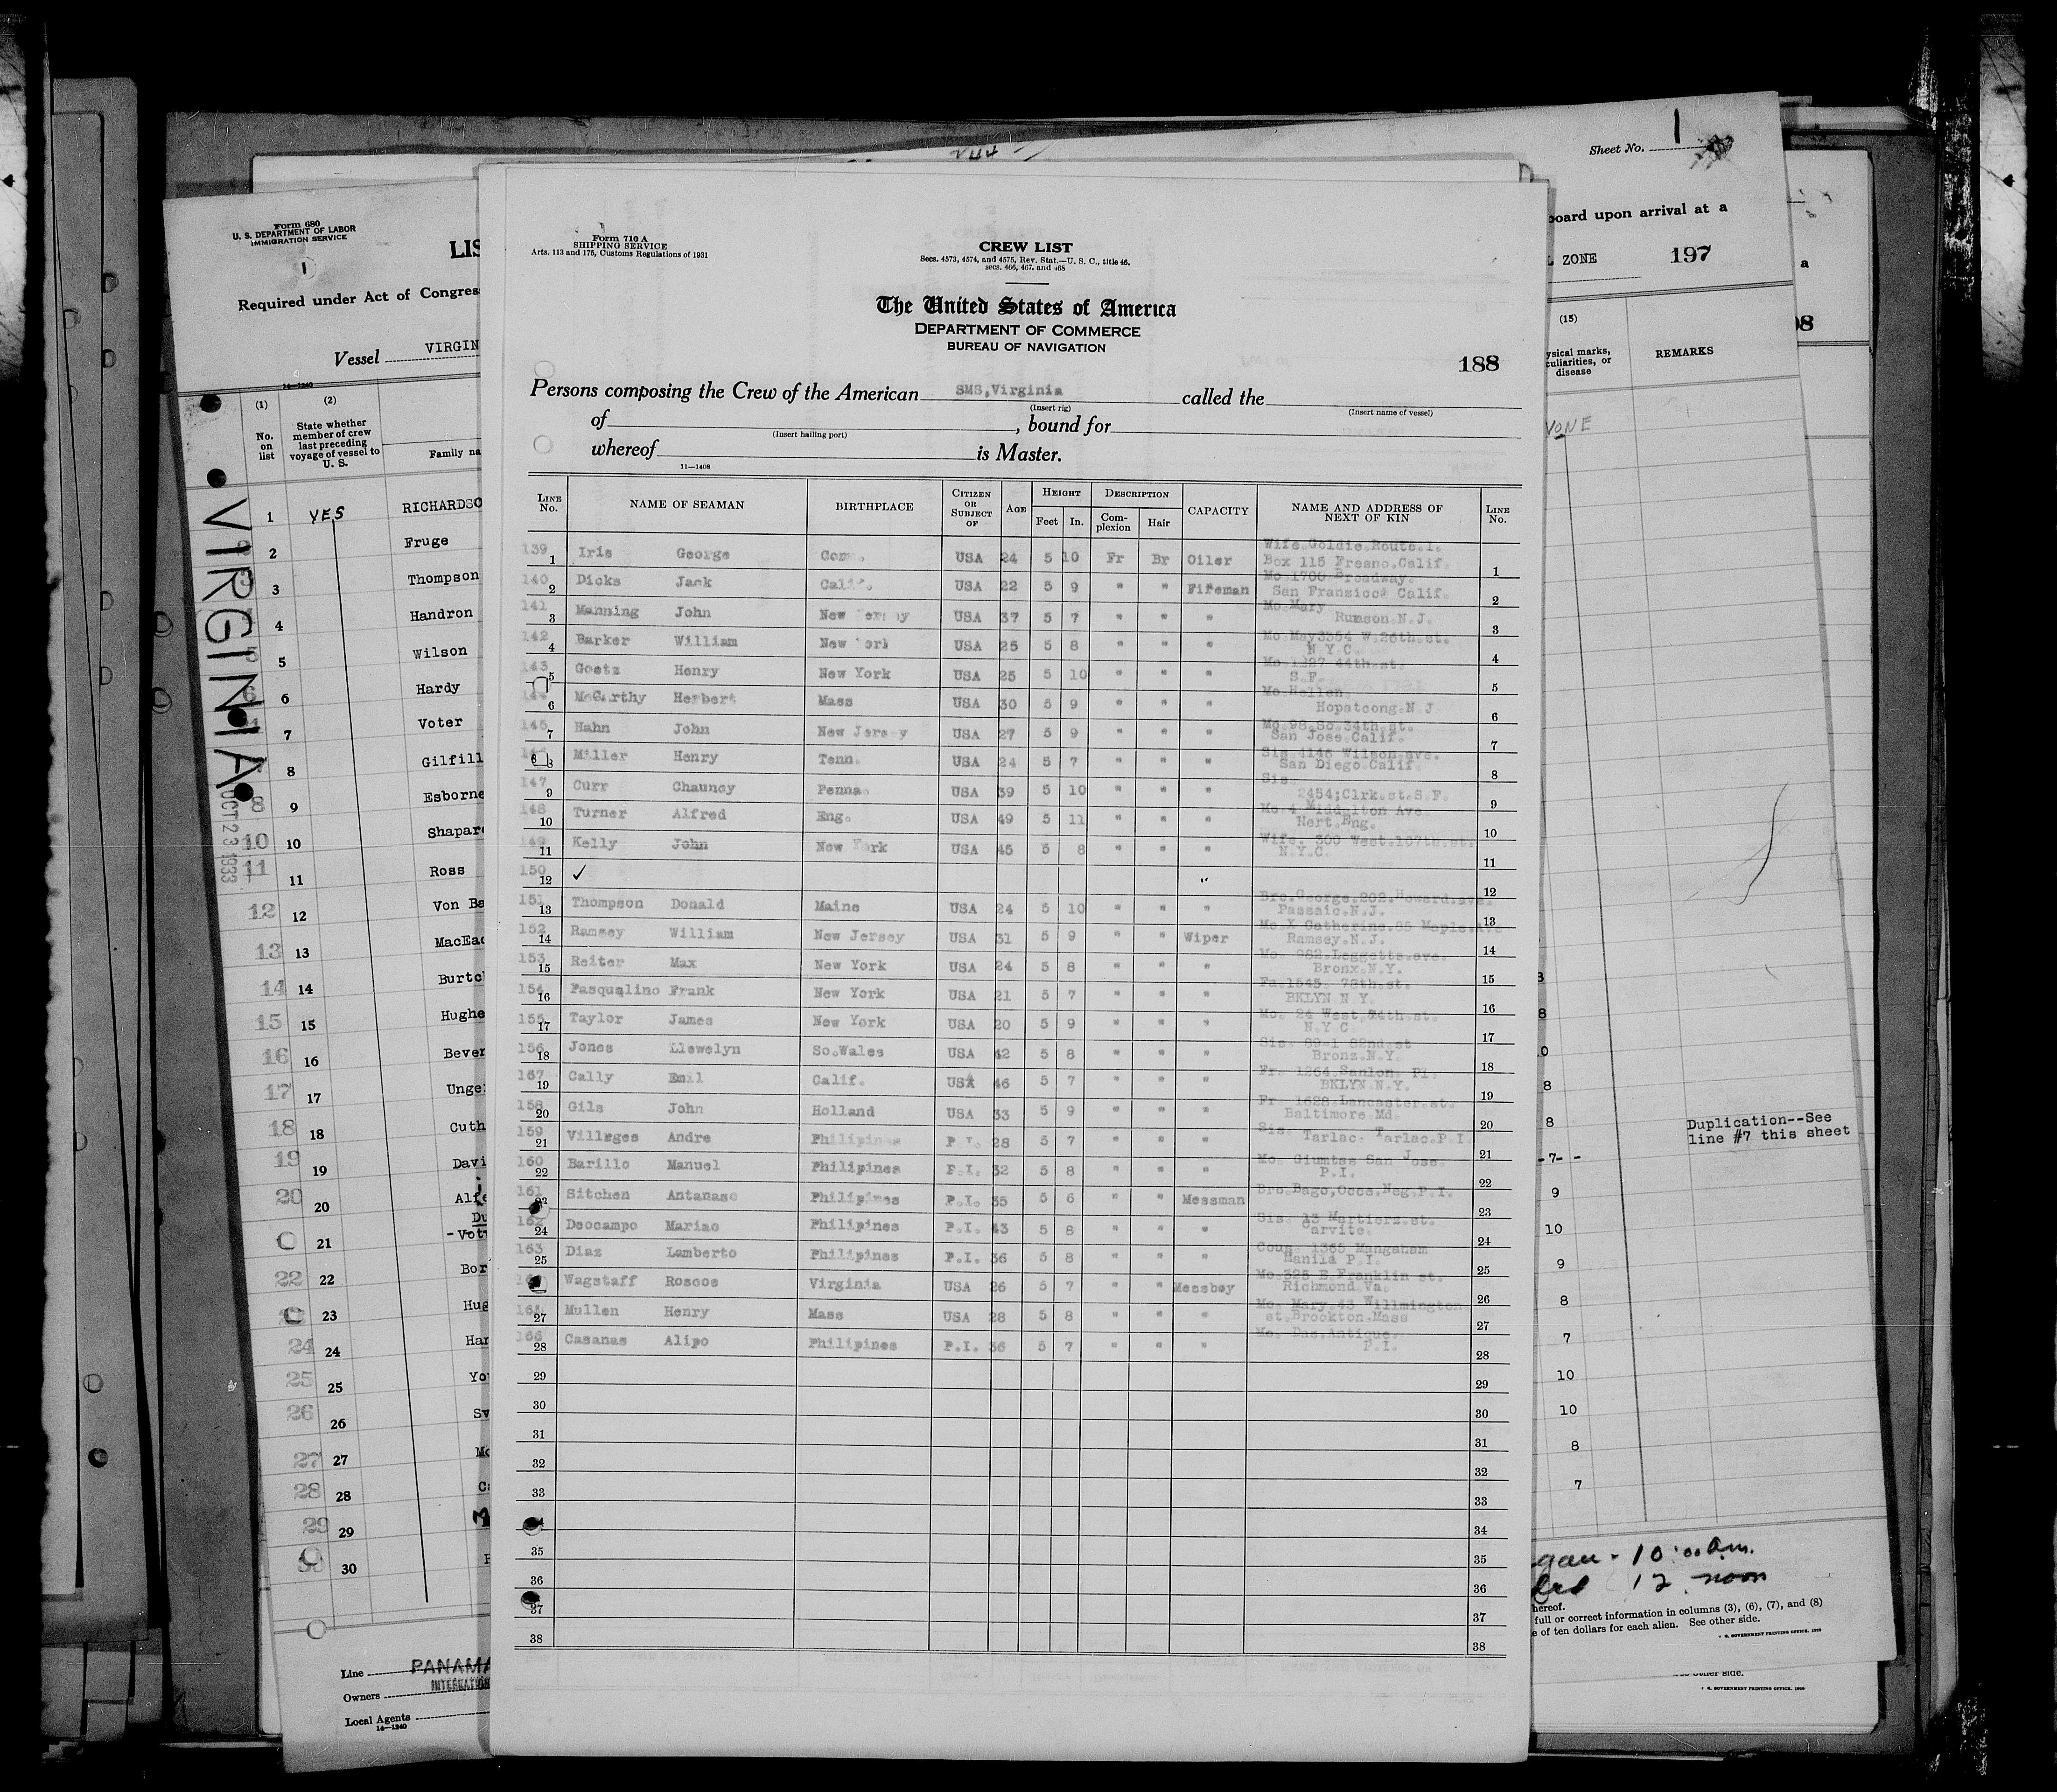 Form 680
U. S. DEPARTMENT OF LABOR
IMMIGRATION SERVICE
1
LIS
Required under Act of Congres
Vessel VIRGIN
14—1240
(1) (2)
No. on list
State whether member of crew last preceding voyage of vessel to U. S.
Family na
VIRGINIA
OCT 23 1933
1 YES RICHARDSO
2 Fruge
3 Thompson
4 Handron
5 Wilson
6 Hardy
7 Voter
8 Gilfill
8 9 Esborne
10 10 Shapar
11 11 Ross
12 12 Von Ba
13 13 MacEac
14 14 Burtc
15 15 Hughe
16 16 Bever
17 17 Unge
18 18 Cuth
19 19 Davi
20 20 Alf
21 -Vot
22 22 Bor
23 Hug
24 24 Har
25 25 Yo
26 26 Sv
27 27 Mc
28 28 C
29 29
30 30
Line PANAMA
INTERNATION
Owners
Local Agents
14—1240
Form 710 A
SHIPPING SERVICE
Arts. 113 and 175, Customs Regulations of 1931
CREW LIST
Secs. 4573, 4574, and 4575, Rev. Stat.—U. S. C., title 46,
secs. 466, 467, and 468
The United States of America
DEPARTMENT OF COMMERCE
BUREAU OF NAVIGATION
188
Persons composing the Crew of the American SMS,Virginia called the
(Insert rig) (Insert name of vessel)
of , bound for
(Insert hailing port)
whereof is Master.
11—1408
LINE No. NAME OF SEAMAN BIRTHPLACE CITIZEN OR SUBJECT OF AGE HEIGHT Feet In. DESCRIPTION Complexion Hair CAPACITY NAME AND ADDRESS OF NEXT OF KIN LINE No.
139 1 Iris George USA 24 5 10 Fr Br Oiler Wife.Goldie.Route.1. Box 115 Fresno.Calif. 1
140 2 Dicks Jack Calif. USA 22 5 9 " " Fireman Mo 1700 Broadway. San Franzico Calif. 2
141 3 Manning John New Jersey USA 37 5 7 " " " Mo.Mary Rumson N.J. 3
142 4 Barker William New York USA 25 5 8 " " " Mo.May3354 W.26th.st. N Y.C. 4
143 5 Goetz Henry New York USA 25 5 10 " " " Mo 1227 44th.st. S.F. 5
144 6 McCarthy Herbert Mass USA 30 5 9 " " " Mo.Hellen. Hopatcong.N.J 6
145 7 Hahn John New Jersey USA 27 5 9 " " " Mo.98.So.34th.st. San Jose.Calif. 7
8 Miller Henry Tenn. USA 24 5 7 " " " Sis.4146 Wilson.ave. San Diego.Calif. 8
147 9 Curr Chauncy Penna. USA 39 5 10 " " " Sis. 2454;Clrk.st.S.F. 9
148 10 Turner Alfred Eng. USA 49 5 11 " " " Mo.4 Middelton Ave. Hert.Eng. 10
149 11 Kelly John New York USA 45 5 8 " " " Wife. 300 West.107th.st. N.Y.C. 11
150 12 ✓ " 12
151 13 Thompson Donald Maine USA 24 5 10 " " " Bro.George.202.Howard.ave. Passaic.N.J. 13
152 14 Ramsey William New Jersey USA 31 5 9 " " Wiper Mo.X Catherine.85 Maple.Ave Ramsey.N.J. 14
153 15 Reiter Max New York USA 24 5 8 " " " Mo. 982.Leggette.ave. Bronx.N.Y. 15
154 16 Pasqualino Frank New York USA 21 5 7 " " " Fa.1545. 72th.st. BKLYN N Y. 16
155 17 Taylor James New York USA 20 5 9 " " " Mo. 24 West.74th.st. N.Y C. 17
156 18 Jones Llewelyn So.Wales USA 42 5 8 " " " Sis. 89-1 82nd.st Bronz.N.Y. 18
157 19 Cally Emil Calif. USA 46 5 7 " " " Fr. 1264.Sanlon. Pl. BKLYN.N.Y. 19
158 20 Gils John Holland USA 33 5 9 " " " Fr 1628.Lancaster.st. Baltimore.Md. 20
159 21 Villeges Andre Philipines P.I. 28 5 7 " " " Sis. Tarlac. Tarlac.P.I. 21
160 22 Barillo Manuel Philipines P.I. 32 5 8 " " " Mo. Giumtas San Jose. P.I. 22
161 Sitchen Antanase Philipines P.I. 35 5 6 " " Messman Bro.Bago,Occe.Neg.P.I. 23
162 24 Deocampo Mariao Philipines P.I. 43 5 8 " " " Sis. 13 Martierz.st. Carvite. 24
163 25 Diaz Lamberto Philipines P.I. 36 5 8 " " " Cous. 1365 Mangaham Manila P.I. 25
Wagstaff Roscoe Virginia USA 26 5 7 " " Messboy Mo.325 E.Franklin st. Richmond.Va. 26
165 27 Mullen Henry Mass USA 28 5 8 " " " Mo. Mary.43 Willmington st.Brookton.Mass 27
166 28 Casanas Alipo Philipines P.I. 36 5 7 " " " Mo. Dao.Antique. P.I. 28
29 29
30 30
31 31
32 32
33 33
34
35 35
36 36
37 37
38 38
Sheet No. 1
board upon arrival at a
L ZONE 197
a
(15)
ysical marks, culiarities, or disease
REMARKS
98
NONE
8
10
8
8
Duplication--See
line #7 this sheet
-7- -
9
10
9
8
7
10
10
8
7
gan - 10:00 a.m.
12 noon
hereof.
full or correct information in columns (3), (6), (7), and (8)
e of ten dollars for each alien. See other side.
GOVERNMENT PRINTING OFFICE.
other side.
GOVERNMENT PRINTING OFFICE.